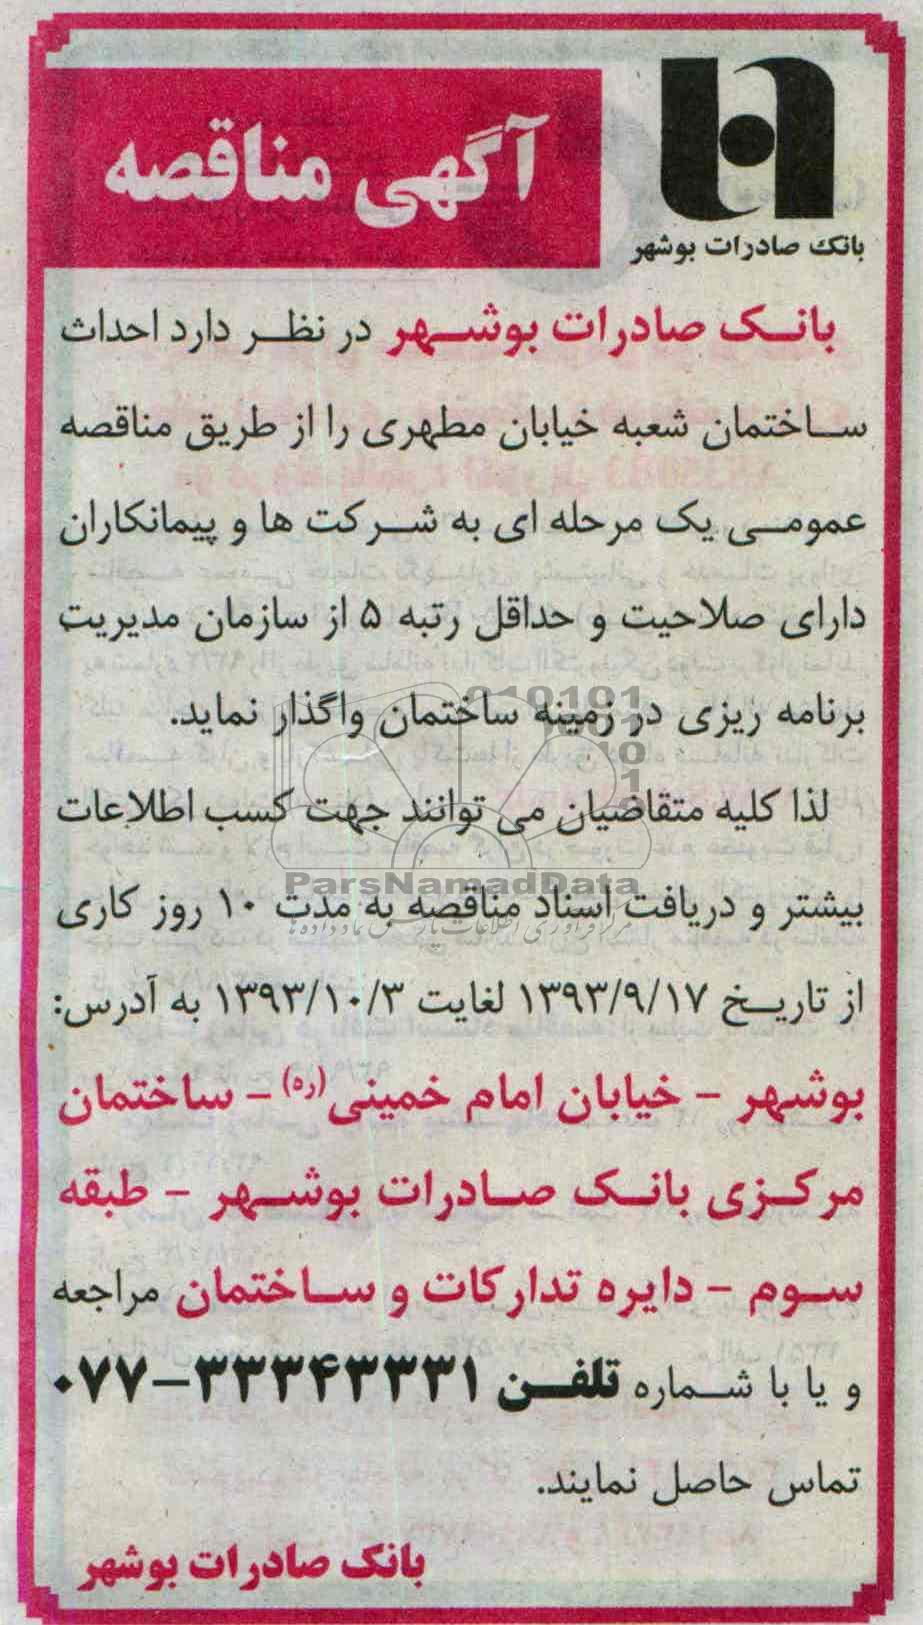 آگهی مناقصه
بانک صادرات بوشهر
بانک صادرات بوشهر در نظر دارد احداث
ساختمان شعبه خیابان مطهری را از طریق مناقصه
عمومی یک مرحله ای به شرکت ها و پیمانکاران
دارای صلاحیت و حداقل رتبه ۵ از سازمان مدیریت
برنامه ریزی در زمینه ساختمان واگذار نماید.
لذا کلیه متقاضیان می توانند جهت کسب اطلاعات
بیشتر و دریافت اسناد مناقصه به مدت ۱۰ روز کاری
از تاریخ ۱۳۹۳/۹/۱۷ لغایت ۱۳۹۳/۱۰/۳ به آدرس:
بوشهر - خیابان امام خمینی (ره) - ساختمان
مرکزی بانک صادرات بوشهر - طبقه
سوم - دایره تدارکات و ساختمان مراجعه
و یا با شماره تلفن ۳۳۳۴۳۳۳۱-۰۷۷
تماس حاصل نمایند.
بانک صادرات بوشهر
ParsNamadData